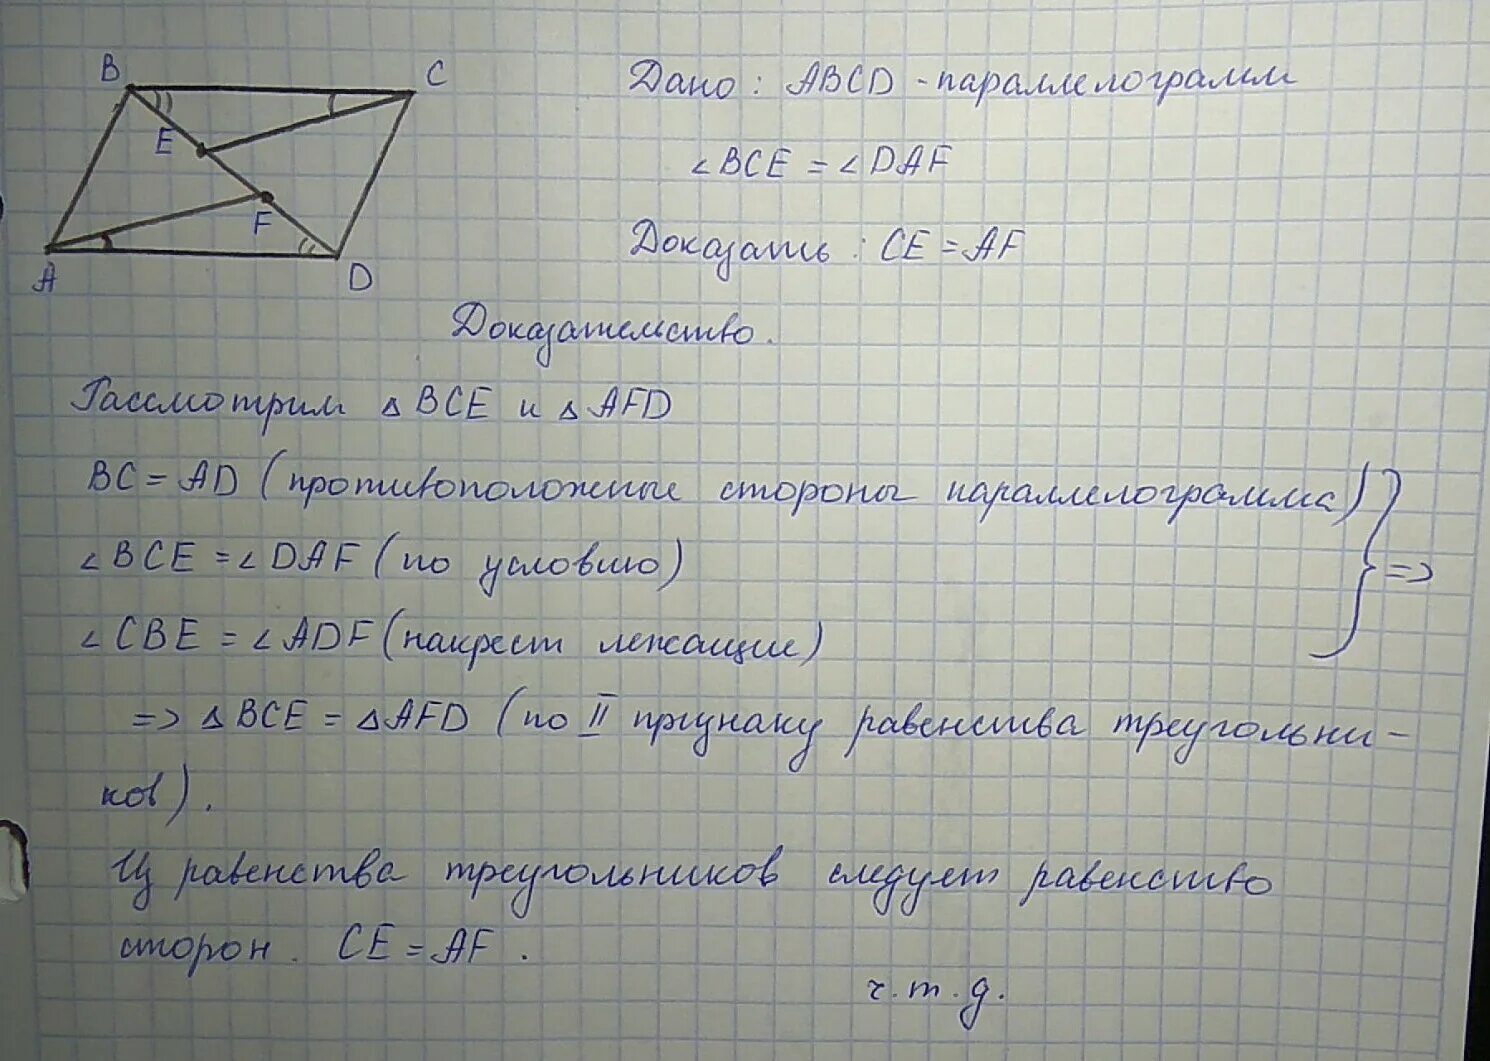 B
C
E
F
A
D
Дано: ABCD - параллелограмм
∠BCE = ∠DAF
Доказать: CE = AF
Доказательство.
Рассмотрим △BCE и △AFD
BC = AD (противоположные стороны параллелограмма)
∠BCE = ∠DAF (по условию) =>
∠CBE = ∠ADF (накрест лежащие)
=> △BCE = △AFD (по II признаку равенства треугольни-
ков).
Из равенства треугольников следует равенство
сторон. CE = AF.
ч.т.д.